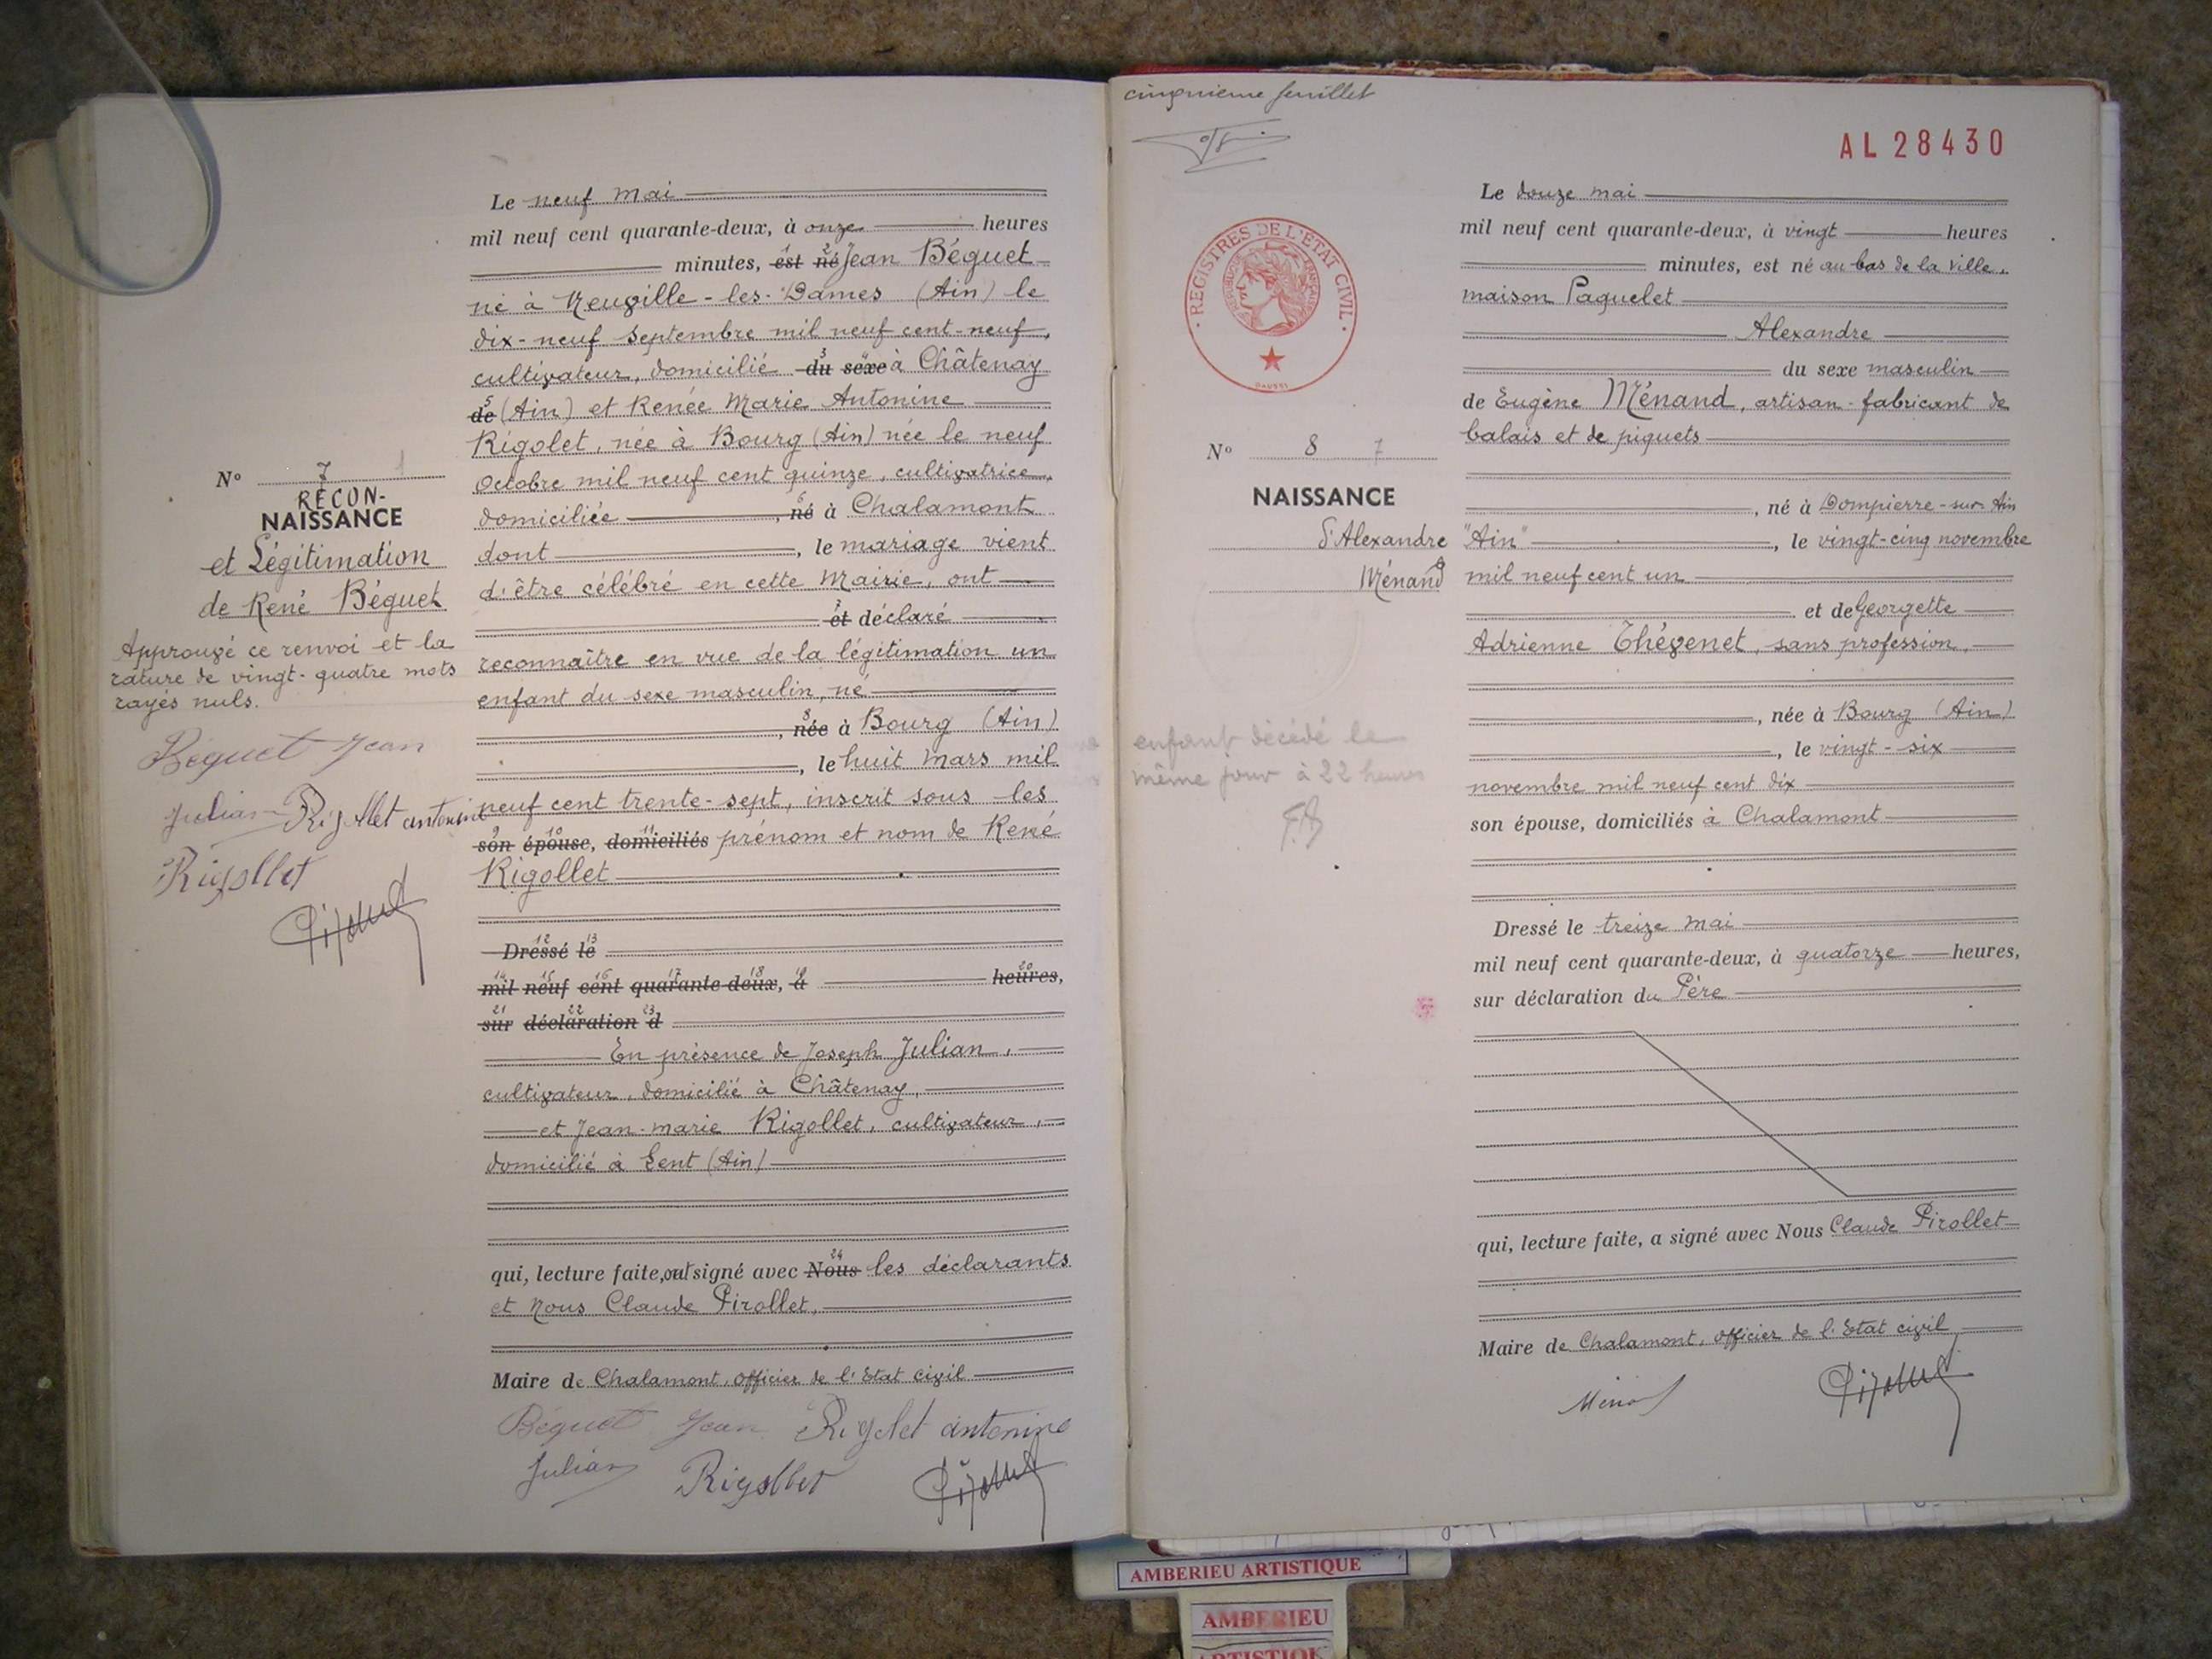 Le neuf mai
mil neuf cent quarante-deux, à onze heures
minutes, est né Jean Béguet
né à Neuville-les-Dames (Ain) le
dix-neuf septembre mil neuf cent-neuf,
cultivateur, domicilié du sexe à Châtenay
de (Ain) et Renée Marie Antonine
Rigolet, née à Bourg (Ain) née le neuf
Octobre mil neuf cent quinze, cultivatrice,
domiciliée, né à Chalamont
dont, le mariage vient
d'être célébré en cette Mairie, ont
et déclaré
reconnaître en vue de la légitimation un
enfant du sexe masculin, né
, née à Bourg (Ain)
, le huit Mars mil
neuf cent trente-sept, inscrit sous les
son épouse, domiciliés prénom et nom de René
Rigollet
Dressé le
mil neuf cent quarante-deux, à heures,
sur déclaration d
En présence de Joseph Julian,
cultivateur, domicilié à Châtenay,
et Jean-Marie Rigollet, cultivateur,
domicilié à Lent (Ain)
qui, lecture faite, ont signé avec Nous les déclarants
et Nous Claude Pirollet,
Maire de Chalamont, Officier de l'Etat civil
Béguet Jean Rigolet antonine
Julian Rigollet
N° 7 1
RECON-
NAISSANCE
et Légitimation
de René Béguet
Approuvé ce renvoi et la
rature de vingt-quatre mots
rayés nuls.
Béguet Jean
Julian Rigollet antonine
Rigollet
cinquieme feuillet
AL 28430
REGISTRES DE L'ETAT CIVIL
REPUBLIQUE FRANÇAISE
N° 8 7
NAISSANCE
d'Alexandre
Ménand
enfant décédé le
même jour à 22 heures
Le douze mai
mil neuf cent quarante-deux, à vingt heures
minutes, est né au bas de la Ville,
maison Paquelet
Alexandre
du sexe masculin
de Eugène Ménand, artisan-fabricant de
balais et de piquets
, né à Dompierre-sur-Ain
"Ain", le vingt-cinq novembre
mil neuf cent un
et de Georgette
Adrienne Thévenet, sans profession,
, née à Bourg (Ain)
, le vingt-six
novembre mil neuf cent dix
son épouse, domiciliés à Chalamont
Dressé le treize mai
mil neuf cent quarante-deux, à quatorze heures,
sur déclaration du Père
qui, lecture faite, a signé avec Nous Claude Pirollet
Maire de Chalamont, Officier de l'Etat civil
AMBERIEU ARTISTIQUE
AMBERIEU
ARTISTIQUE